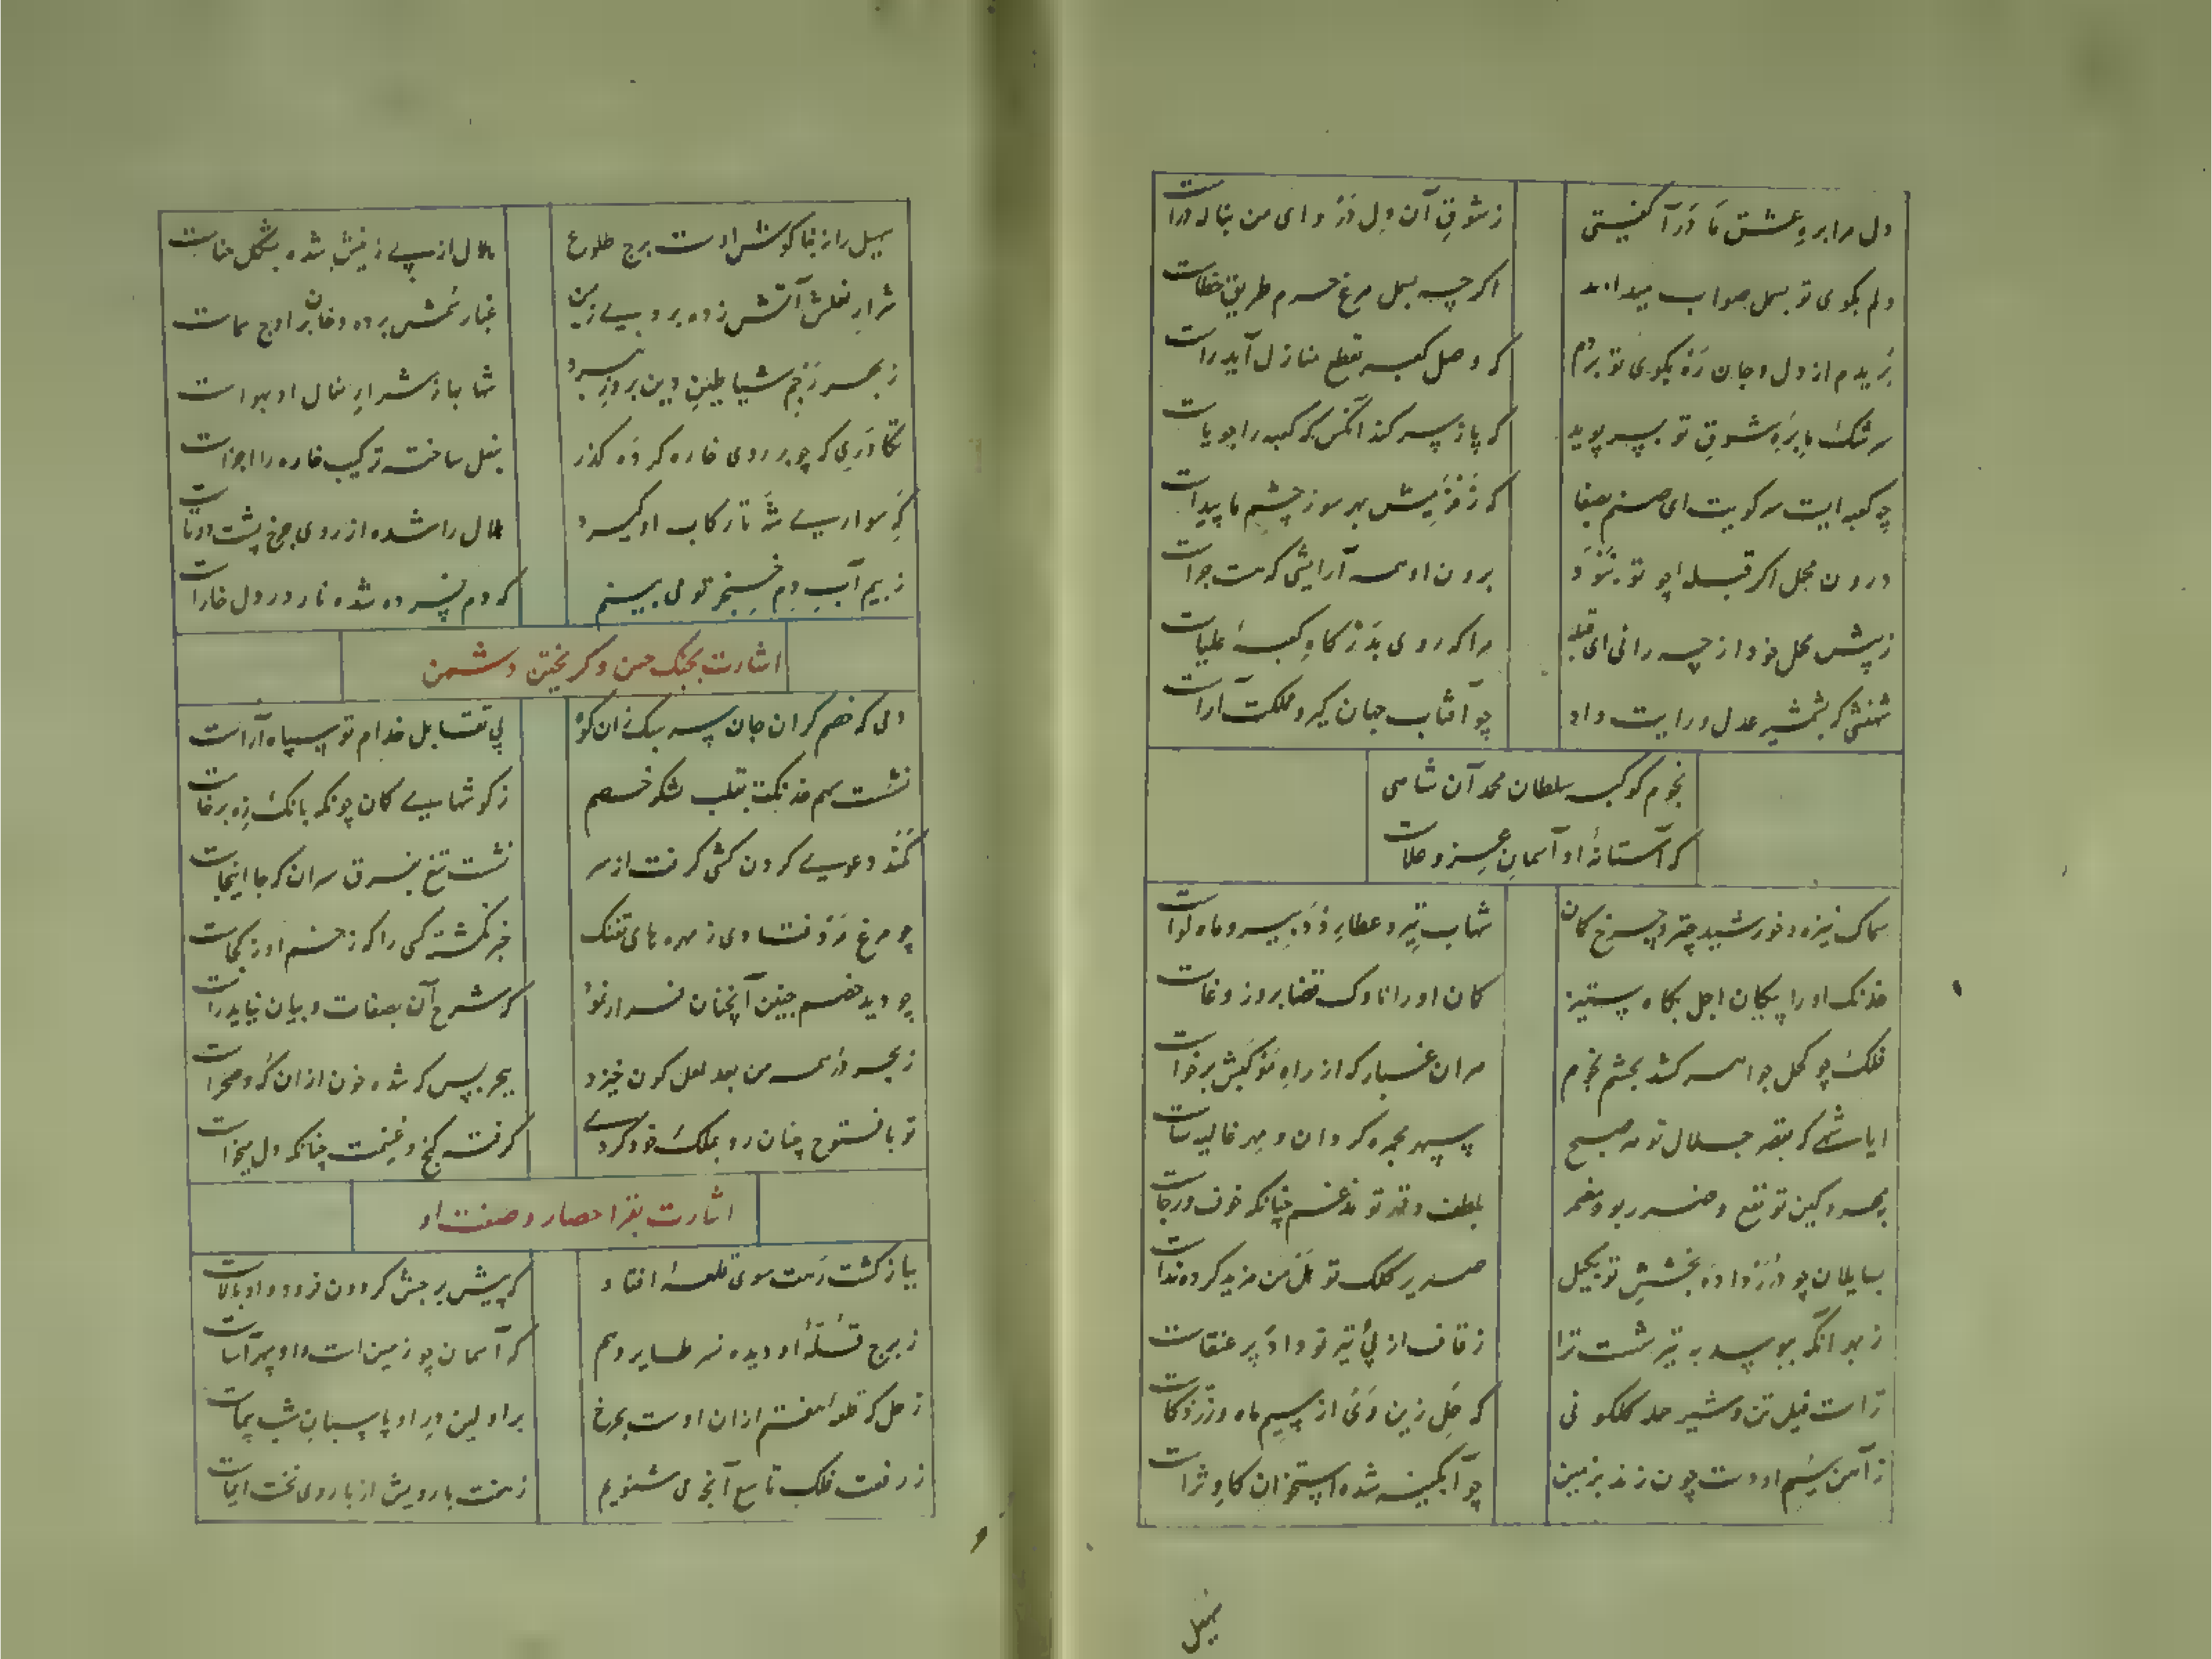 دل مرا بره عشق ما درآ کفیتی
ز شوق آن دل در وای من بناله دراست
دلم بکوی تو بسمل صواب میداند
اکر چه بسمل مرغ حرم طریق خطاست
بریدم از دل و جان ره بکوی تو بردم
که وصل کعبه بقطع منازل آید راست
سرشک ما بره شوق تو بسر پوید
که پا ز سر کند آنکس که کعبه را جویاست
چه کعبه ایست سر کویت ای صنم بصفا
که زمزمیش بهر سو ز چشم ما پیداست
درون محمل اکر قبله چو تو نبود
برون او همه آرایشی که هست جو است
ز پیش محمل خود از چه رانی ای قبله
مرا که روی بدرکاه کعبه علیاست
شهنشهی که بشمشیر عدل و رایت داد
چو آفتاب جهان کیر و مملکت آراست
نجوم کوکبه سلطان محمد آن شاهی
که آستانه او آسمان عز و علاست
سماک نیزه و خورشید چتر و چرخ کمان
شهاب تیر و عطارد دبیر و ماه لواست
خدنک او را پیکان اجل بکاه ستیز
کمان او را ناوک قضا بروز وغاست
فلک چو کحل جواهر کشد بچشم نجوم
هر آن غبار که از راه موکبش برخاست
ایا شهی که جلال تو هر صبح
سپهر مجمره کردان و مهر غالیه ساست
بمهر و کین تو نفع و ضرر بود مضمر
بلطف و قهر تو مدغم چنانکه خوف و رجاست
بسایلان چو درر داده بخشش تو بکیل
صریر کلک تو هل من مزید کرده نداست
ز بهر آنکه ببوسد به تیر شست ترا
ز قاف از پی تیر تو داد پر عنقاست
تراست فیل تن و شیر حمله کلکونی
که جل زین وی از سیم ماه و زر ذکاست
ز آهن سم او دست چون زند بزمین
چو آبکینه شده استخوان کاو ثراست
سهیل
سهیل را ز بناکوش اوست برج طلوع
هلال از پی زینش شده بشکل حناست
شرار نعلش آتش زده بروی زمین
غبار سمش برده دخان بر اوج سماست
ز بهر رجم شیاطین دین بروز نبرد
شهابها ز شرار نعال او بهواست
تکاوری که چو بر روی خاره کرده کذر
بنعل ساخته ترکیب خاره را اجزاست
که سواری شه تا رکاب او کیرد
هلال را شده از روی چرخ پشت دوتاست
ز بیم آب دم خنجر تو می بینم
که دم فسرده شده نار در دل خاراست
اشارت بجنک حسن و کریختن دشمن
دمی که خصم کران جان سر سبک زان کوه
پی تقابل خدام تو سپاه آراست
نشست سهم خدنکت بقلب لشکر خصم
ز کوشهای کمان چونکه بانک زه برخاست
کمند دعوی کردن کشی کرفت از سر
نشست تیغ بفرق سران که جا اینجاست
چو مرغ مرد فتادی ز مهره های تفنک
خبر نکشته کسی را که زخم او ز کجاست
چو دید خصم چنین آنچنان فرار نمود
که شرح آن بصفات و بیان نیاید راست
ز بحر در همه من بعد لعل کون خیزد
ببحر بس که شده خون از ان که و صحراست
تو با فتوح چنان رو بملک خود کردی
کرفته کنج و غنیمت چنانکه دل میخواست
اشارت بقرا حصار و صفت او
بباز کشت رهت سوی قلعه افتاد
که پیش برجش کردون فرود و او بالاست
ز برج قله او دیده نسر طایر وهم
که آسمان چو زمین است و او سپهر آساست
زحل که قلعه هفتم از ان اوست بچرخ
بر اولین در او پاسبان شب پیماست
ز رفعت فلک تاسع آنچه می شنویم
ز هفت بارویش از باروی نخست ایماست